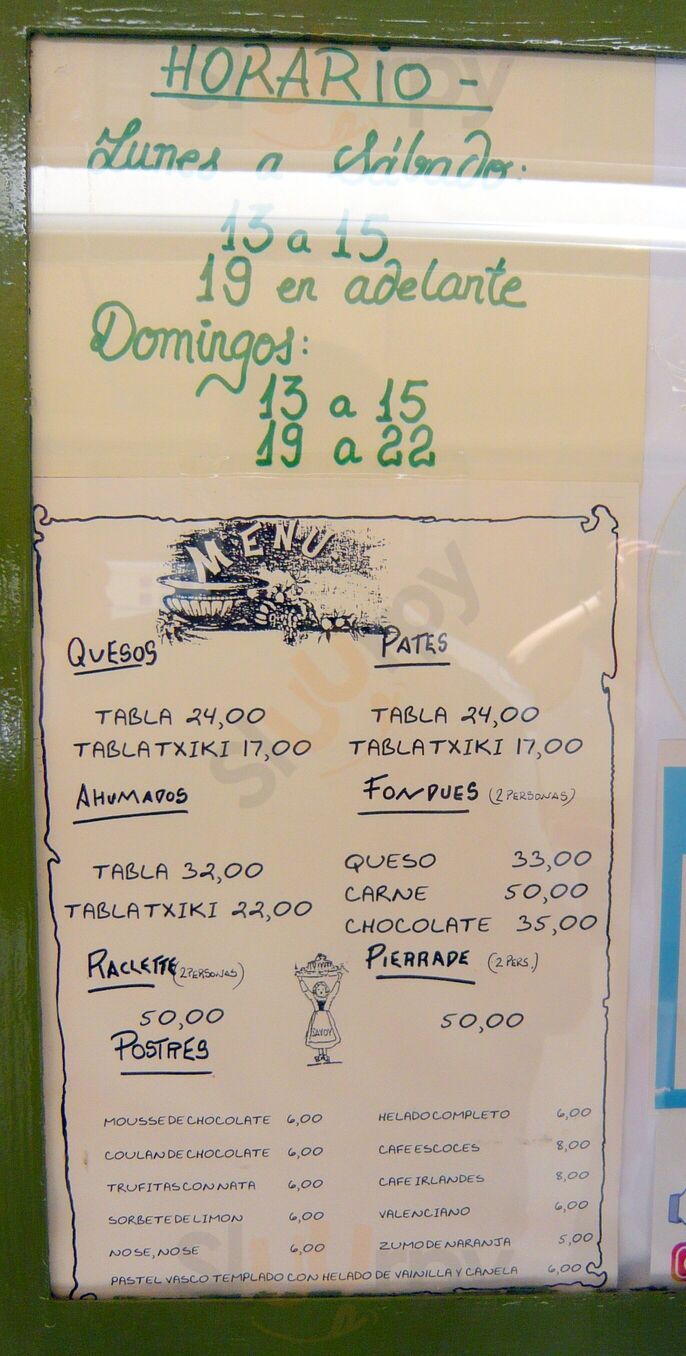 HORARIO -
Lunes a Sábado:
13 a 15
19 en adelante
Domingos:
13 a 15
19 a 22
MENU
QUESOS
TABLA 24,00
TABLA TXIKI 17,00
PATES
TABLA 24,00
TABLA TXIKI 17,00
AHUMADOS
TABLA 32,00
TABLA TXIKI 22,00
FONDUES (2 PERSONAS)
QUESO 33,00
CARNE 50,00
CHOCOLATE 35,00
RACLETTE (2 PERSONAS)
50,00
SAVOY
PIERRADE (2 PERS.)
50,00
POSTRES
MOUSSE DE CHOCOLATE 6,00
COULAN DE CHOCOLATE 6,00
TRUFITAS CON NATA 6,00
SORBETE DE LIMON 6,00
NO SE, NO SE 6,00
HELADO COMPLETO 6,00
CAFE ESCOCES 8,00
CAFE IRLANDES 8,00
VALENCIANO 6,00
ZUMO DE NARANJA 5,00
PASTEL VASCO TEMPLADO CON HELADO DE VAINILLA Y CANELA 6,00
sluurpy
sluurpy
sluurpy